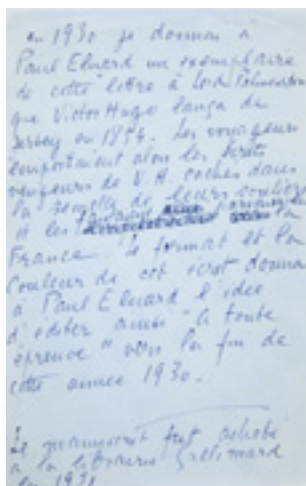 en 1930 je donnai à
Paul Eluard un exemplaire
de cette lettre à Lord Palmerston
que Victor Hugo lança de
Jersey en 1854. Les voyageurs
emportaient alors les écrits
vengeurs de V. H. cachés dans
la semelle de leurs souliers
et les
France. Le format et la
couleur de cet écrit donna
à Paul Eluard l'idée
d'éditer ainsi "à toute
épreuve" vers la fin de
cette année 1930.
Le manuscrit fut acheté
à la librairie Gallimard
en 1931